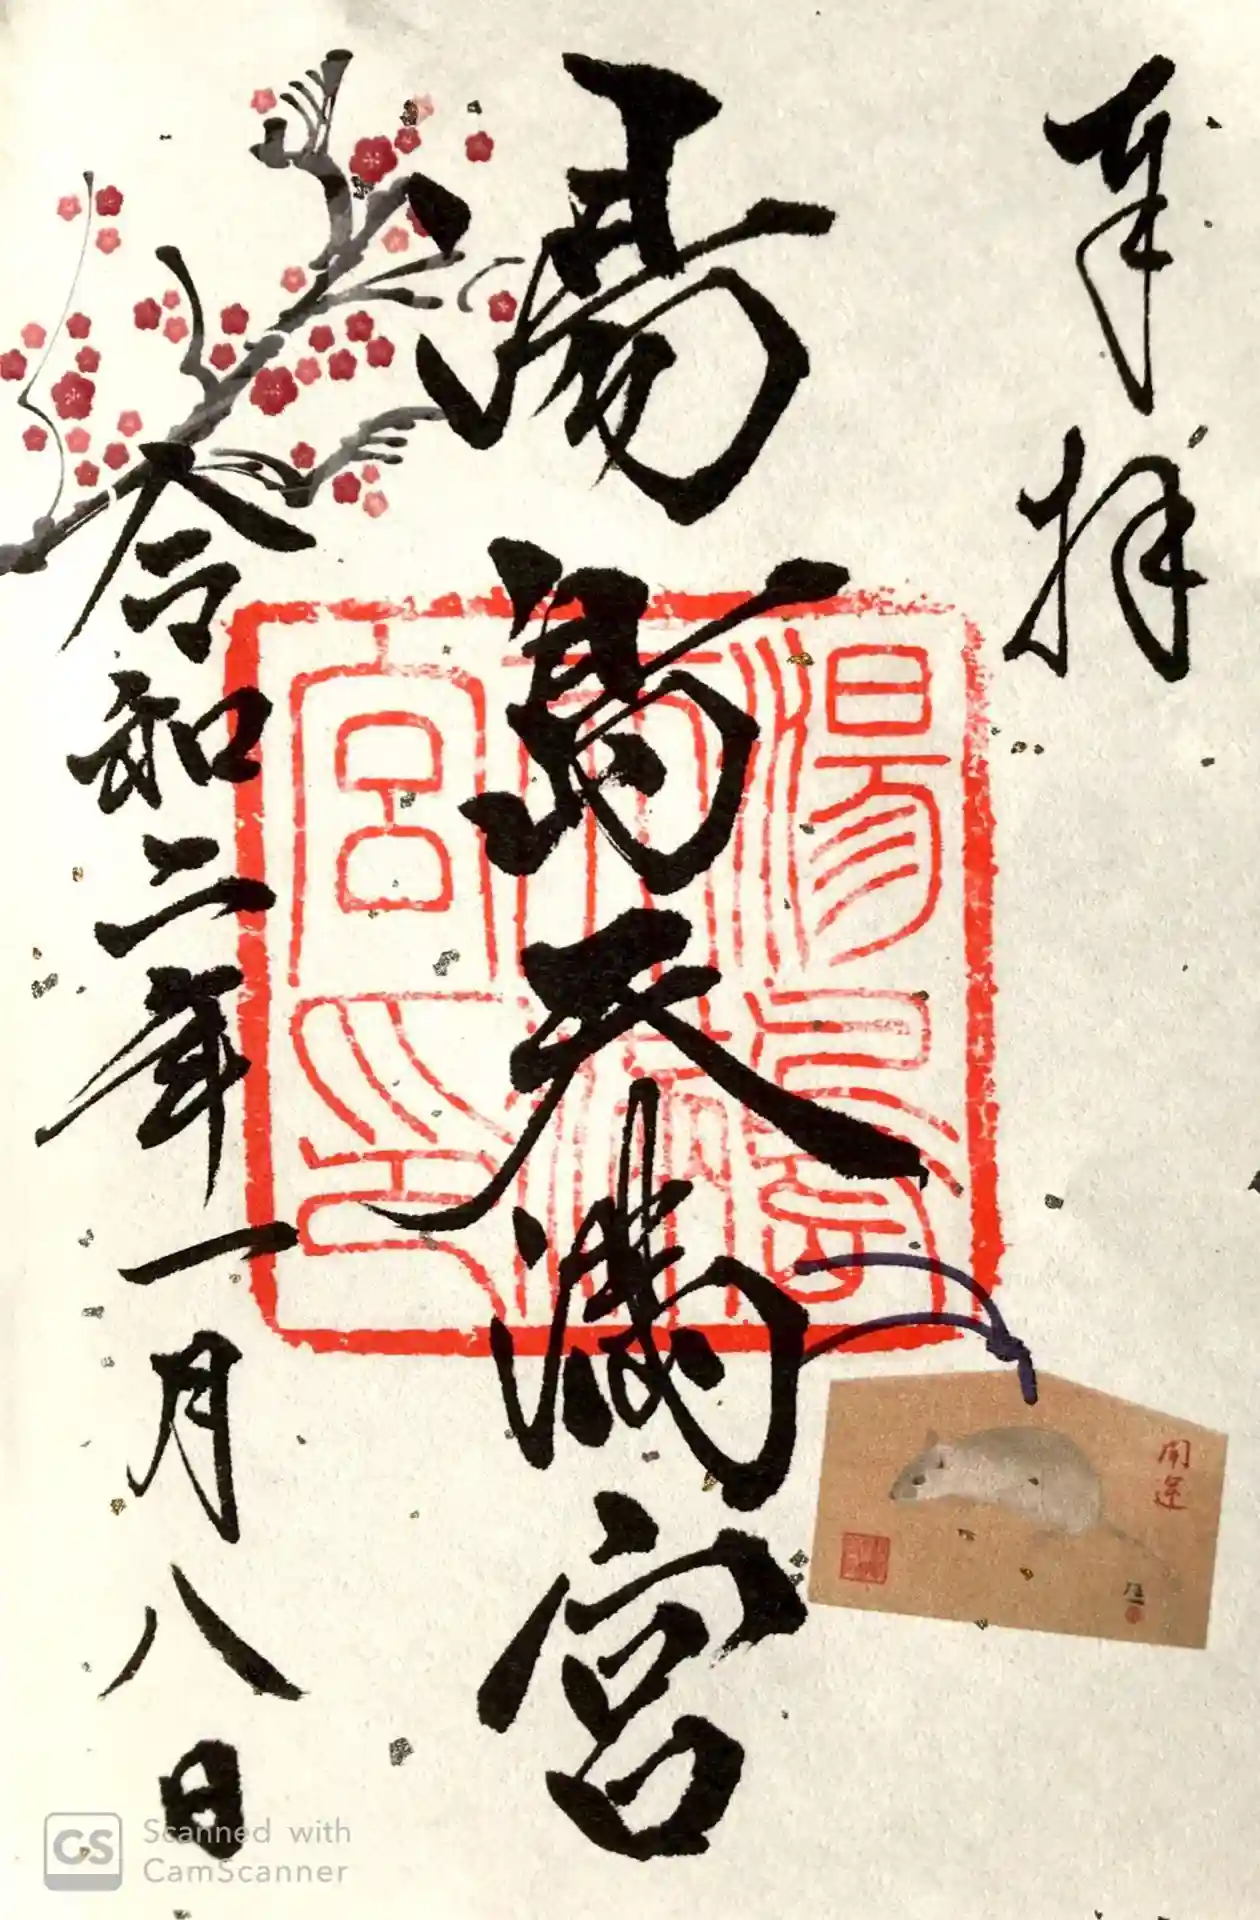 奉拝
湯島天満宮
令和二年一月八日
開運
CS
Scanned with
CamScanner